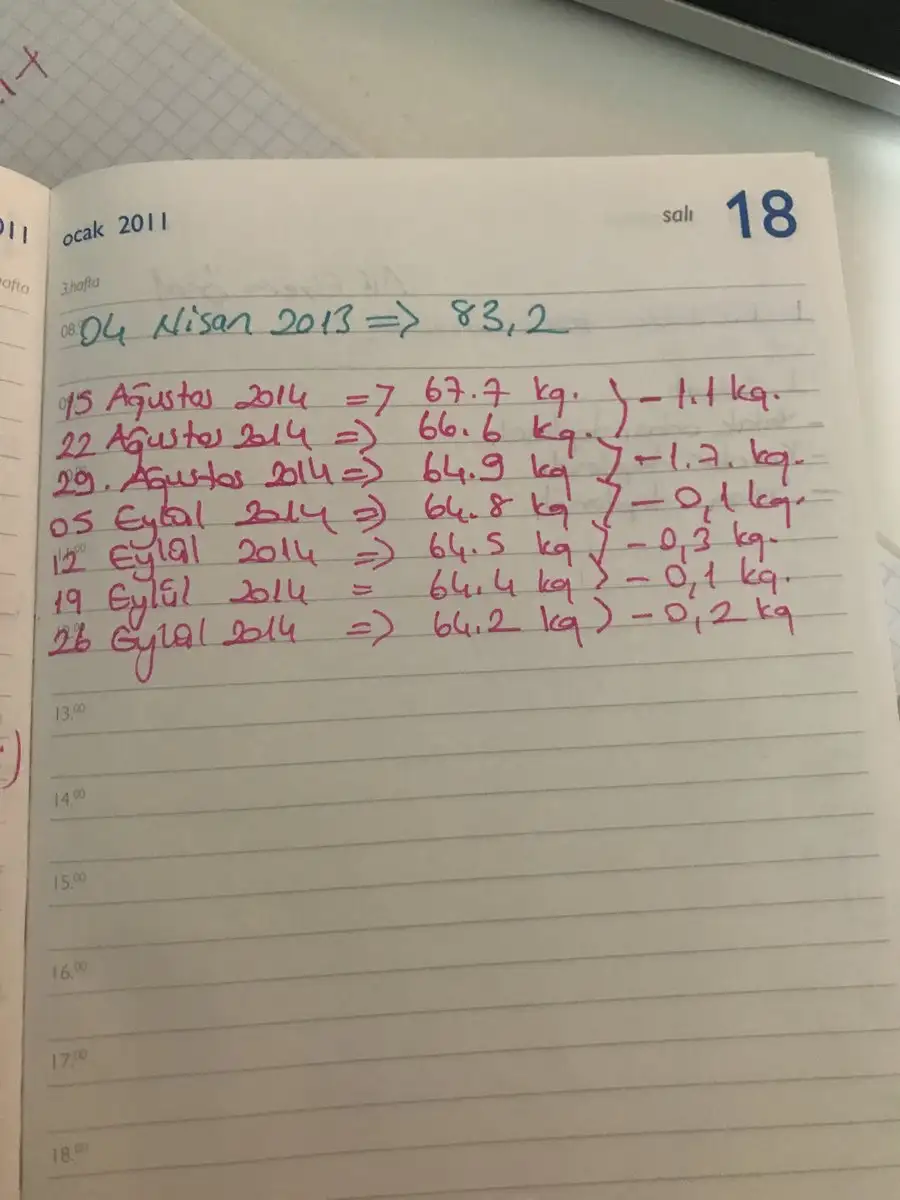 ocak 2011
salı 18
3.hafta
04 Nisan 2013 => 83,2
15 Ağustos 2014 => 67.7 kg. } - 1.1 kg.
22 Ağustos 2014 => 66.6 kg.
29. Ağustos 2014 => 64.9 kg } - 1.7. kg.
05 Eylül 2014 => 64.8 kg } - 0,1 kg.
12 Eylül 2014 => 64.5 kg } - 0,3 kg.
19 Eylül 2014 = 64.4 kg } - 0,1 kg.
26 Eylül 2014 => 64.2 kg ) - 0,2 kg
13.00
14.00
15.00
16.00
17.00
18.00